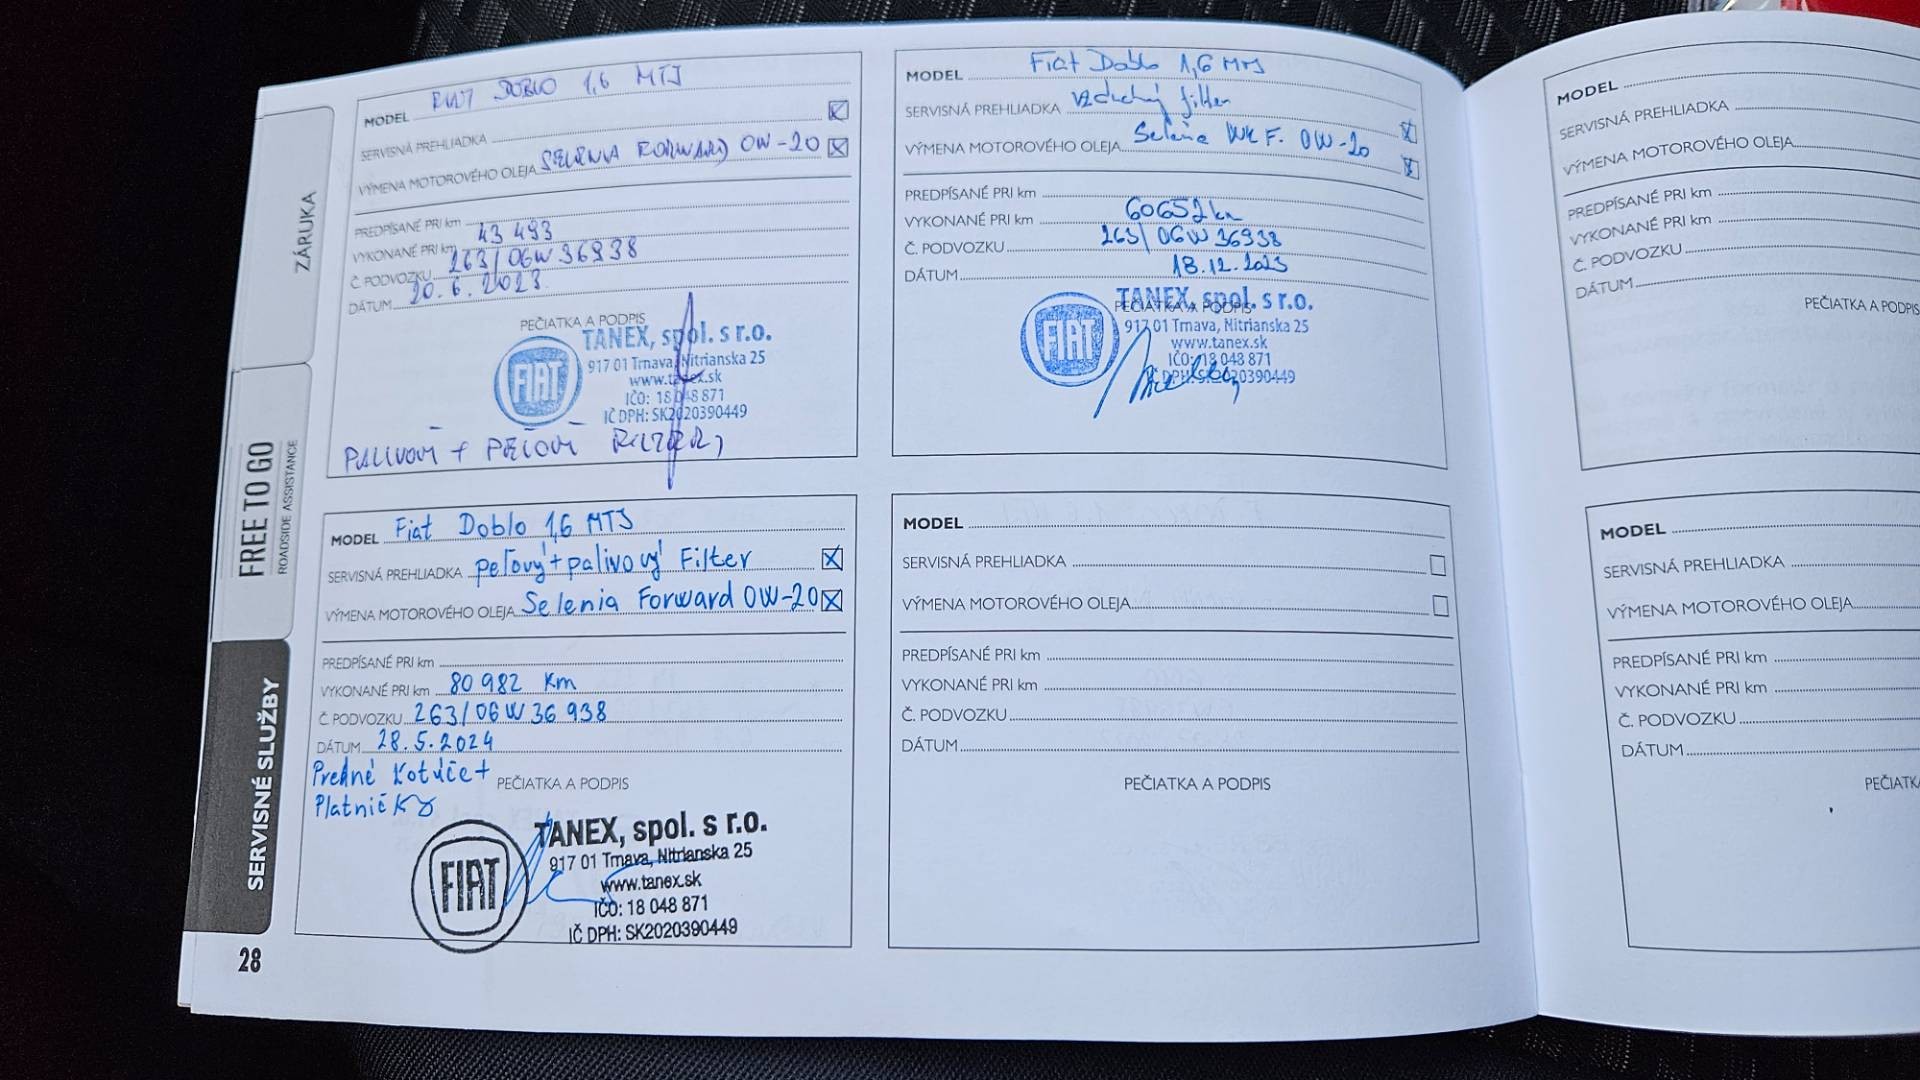 ZÁRUKA
FREE TO GO
ROADSIDE ASSISTANCE
SERVISNÉ SLUŽBY
28
MODEL FIAT DOBLO 1,6 MTJ
SERVISNÁ PREHLIADKA
VÝMENA MOTOROVÉHO OLEJA SELENIA FORWARD 0W-20
PREDPÍSANÉ PRI km
VYKONANÉ PRI km 43 493
Č. PODVOZKU 263/06W36938
DÁTUM 20.6.2023
PEČIATKA A PODPIS
TANEX, spol. s r.o.
917 01 Trnava, Nitrianska 25
www.tanex.sk
IČO: 18 048 871
IČ DPH: SK2020390449
FIAT
PALIVOVÝ + PEĽOVÝ FILTER,
MODEL Fiat Doblo 1,6 MTJ
SERVISNÁ PREHLIADKA vzduchový filter
VÝMENA MOTOROVÉHO OLEJA Selenia WR F. 0W-20
PREDPÍSANÉ PRI km
VYKONANÉ PRI km 60652 km
Č. PODVOZKU 263/06W36938
DÁTUM 18.12.2023
PEČIATKA A PODPIS
TANEX, spol. s r.o.
917 01 Trnava, Nitrianska 25
www.tanex.sk
IČO: 18 048 871
IČ DPH: SK2020390449
FIAT
MODEL Fiat Doblo 1,6 MTJ
SERVISNÁ PREHLIADKA peľový + palivový Filter
VÝMENA MOTOROVÉHO OLEJA Selenia Forward 0W-20
PREDPÍSANÉ PRI km
VYKONANÉ PRI km 80 982 km
Č. PODVOZKU 263/06W36938
DÁTUM 28.5.2024
Predné kotúče +
Platničky
PEČIATKA A PODPIS
TANEX, spol. s r.o.
917 01 Trnava, Nitrianska 25
www.tanex.sk
IČO: 18 048 871
IČ DPH: SK2020390449
FIAT
MODEL
SERVISNÁ PREHLIADKA
VÝMENA MOTOROVÉHO OLEJA
PREDPÍSANÉ PRI km
VYKONANÉ PRI km
Č. PODVOZKU
DÁTUM
PEČIATKA A PODPIS
MODEL
SERVISNÁ PREHLIADKA
VÝMENA MOTOROVÉHO OLEJA
PREDPÍSANÉ PRI km
VYKONANÉ PRI km
Č. PODVOZKU
DÁTUM
PEČIATKA A PODPIS
MODEL
SERVISNÁ PREHLIADKA
VÝMENA MOTOROVÉHO OLEJA
PREDPÍSANÉ PRI km
VYKONANÉ PRI km
Č. PODVOZKU
DÁTUM
PEČIATK